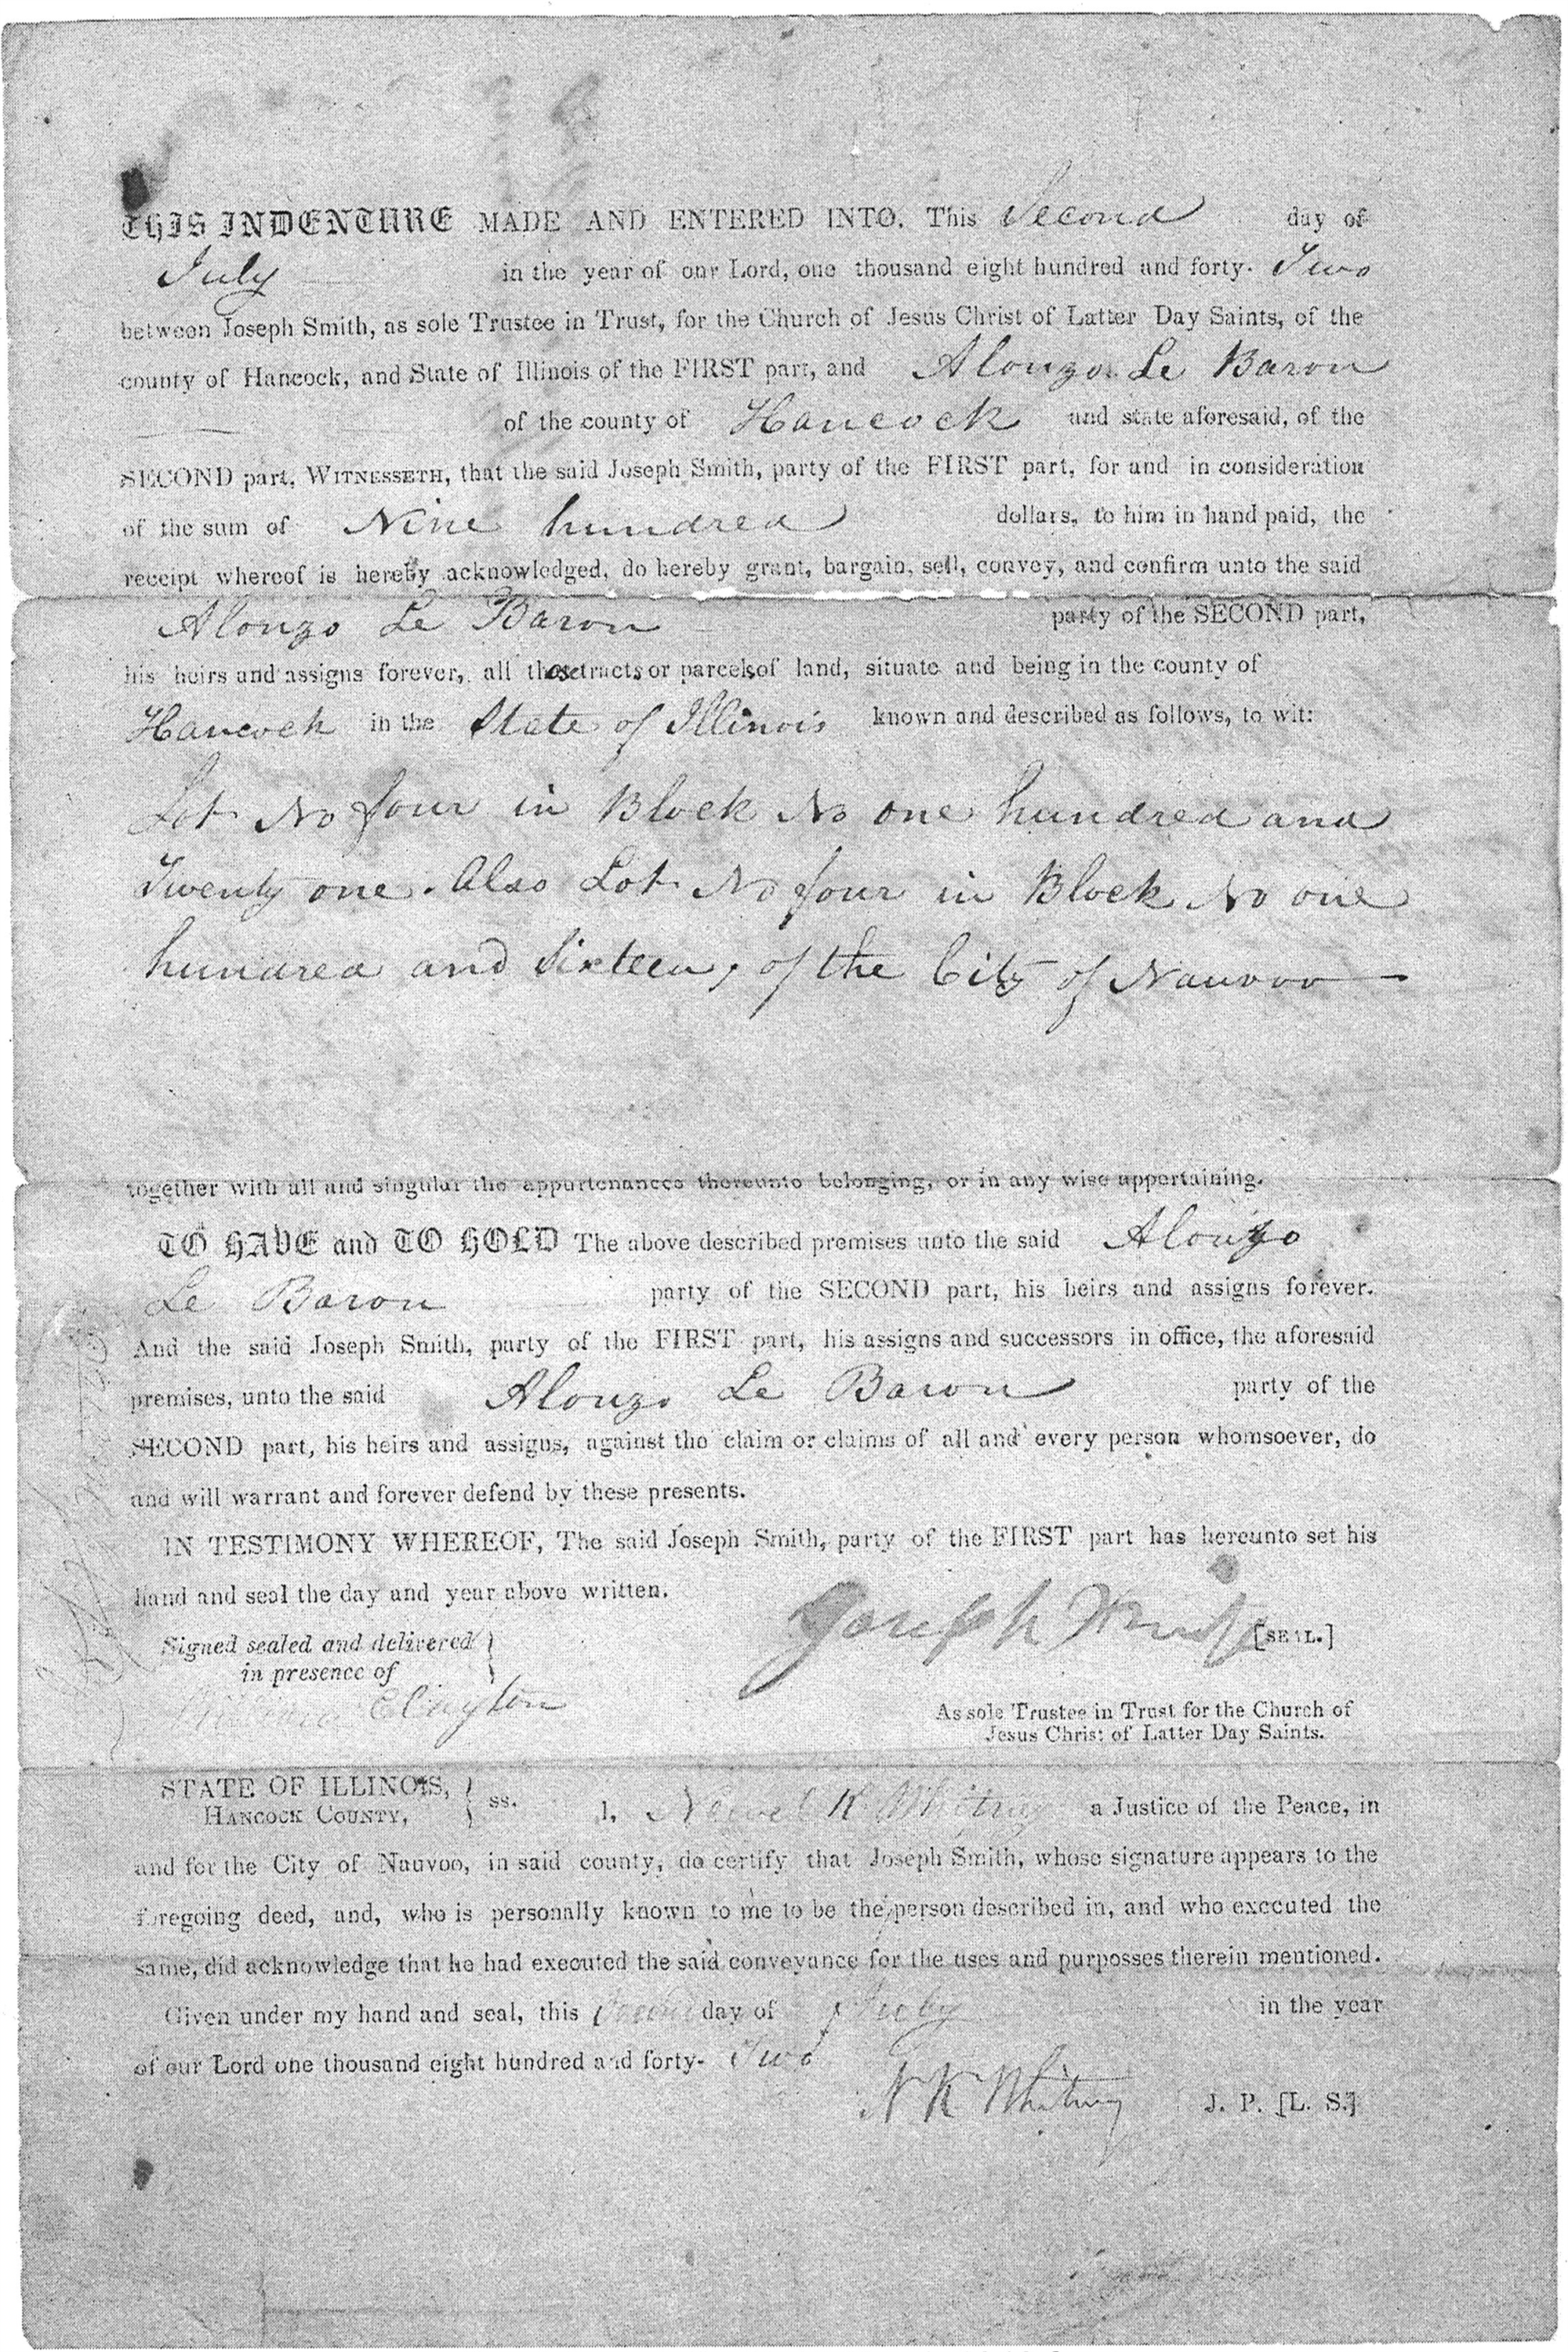 THIS INDENTURE MADE AND ENTERED INTO, This Second day of
July in the year of our Lord, one thousand eight hundred and forty- Two
between Joseph Smith, as sole Trustee in Trust, for the Church of Jesus Christ of Latter Day Saints, of the
county of Hancock, and State of Illinois of the FIRST part, and Alonzo Le Baron
of the county of Hancock and state aforesaid, of the
SECOND part, WITNESSETH, that the said Joseph Smith, party of the FIRST part, for and in consideration
of the sum of Nine hundred dollars, to him in hand paid, the
receipt whereof is hereby acknowledged, do hereby grant, bargain, sell, convey, and confirm unto the said
Alonzo Le Baron party of the SECOND part,
his heirs and assigns forever, all those tracts or parcels of land, situate and being in the county of
Hancock in the State of Illinois known and described as follows, to wit:
Lot No four in Block No one hundred and
Twenty one. Also Lot No four in Block No one
hundred and Sixteen, of the City of Nauvoo
together with all and singular the appurtenances thereunto belonging, or in any wise appertaining.
TO HAVE and TO HOLD The above described premises unto the said Alonzo
Le Baron party of the SECOND part, his heirs and assigns forever.
And the said Joseph Smith, party of the FIRST part, his assigns and successors in office, the aforesaid
premises, unto the said Alonzo Le Baron party of the
SECOND part, his heirs and assigns, against the claim or claims of all and every person whomsoever, do
and will warrant and forever defend by these presents.
IN TESTIMONY WHEREOF, The said Joseph Smith, party of the FIRST part has hereunto set his
hand and seal the day and year above written.
Joseph Smith [SEAL.]
Signed sealed and delivered
in presence of
William Clayton
As sole Trustee in Trust for the Church of
Jesus Christ of Latter Day Saints.
STATE OF ILLINOIS,
HANCOCK COUNTY, ss. I, Newel K Whitney a Justice of the Peace, in
and for the City of Nauvoo, in said county, do certify that Joseph Smith, whose signature appears to the
foregoing deed, and, who is personally known to me to be the person described in, and who executed the
same, did acknowledge that he had executed the said conveyance for the uses and purposses therein mentioned.
Given under my hand and seal, this day of July in the year
of our Lord one thousand eight hundred and forty- Two
N K Whitney J. P. [L. S.]